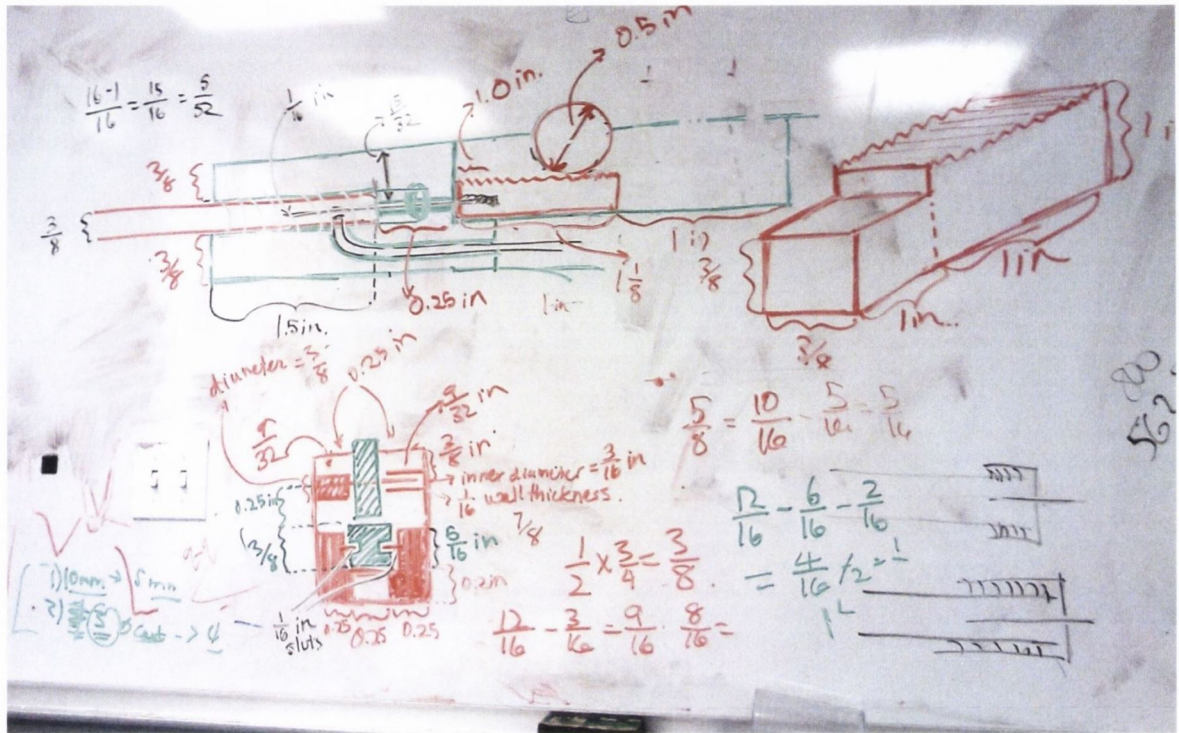 0.5 in
1.0 in.
(16-1)/16 = 15/16 = 5/32
1/16 in
5/32
3/8
3/8
3/8
1.5 in.
0.25 in
1 in
1 1/8
1 in
3/8
1 in
1 in
1 in..
3/8
diameter = 3/8
0.25 in
9/32 in
9/32
3/8 in
inner diameter = 3/16 in
1/16 wall thickness.
0.25 in
3/8
5/16 in
7/8
0.2 in
1/16 in
sluts
0.25
0.25
0.25
1) 10mm → 5 mm
2)
cast → 4
5/8 = 10/16 - 5/16 = 5/16
1/2 × 3/4 = 3/8
12/16 - 3/16 = 9/16 . 8/16 =
12/16 - 6/16 - 2/16
= 4/16 /2 = 1